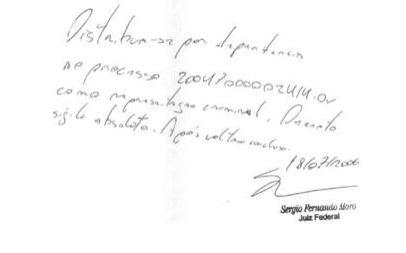 Distribua-se por dependência
ao processo
como representação criminal. Decreto
sigilo absoluto. Após voltem conclusos.
18/07/2006
Sergio Fernando Moro
Juiz Federal